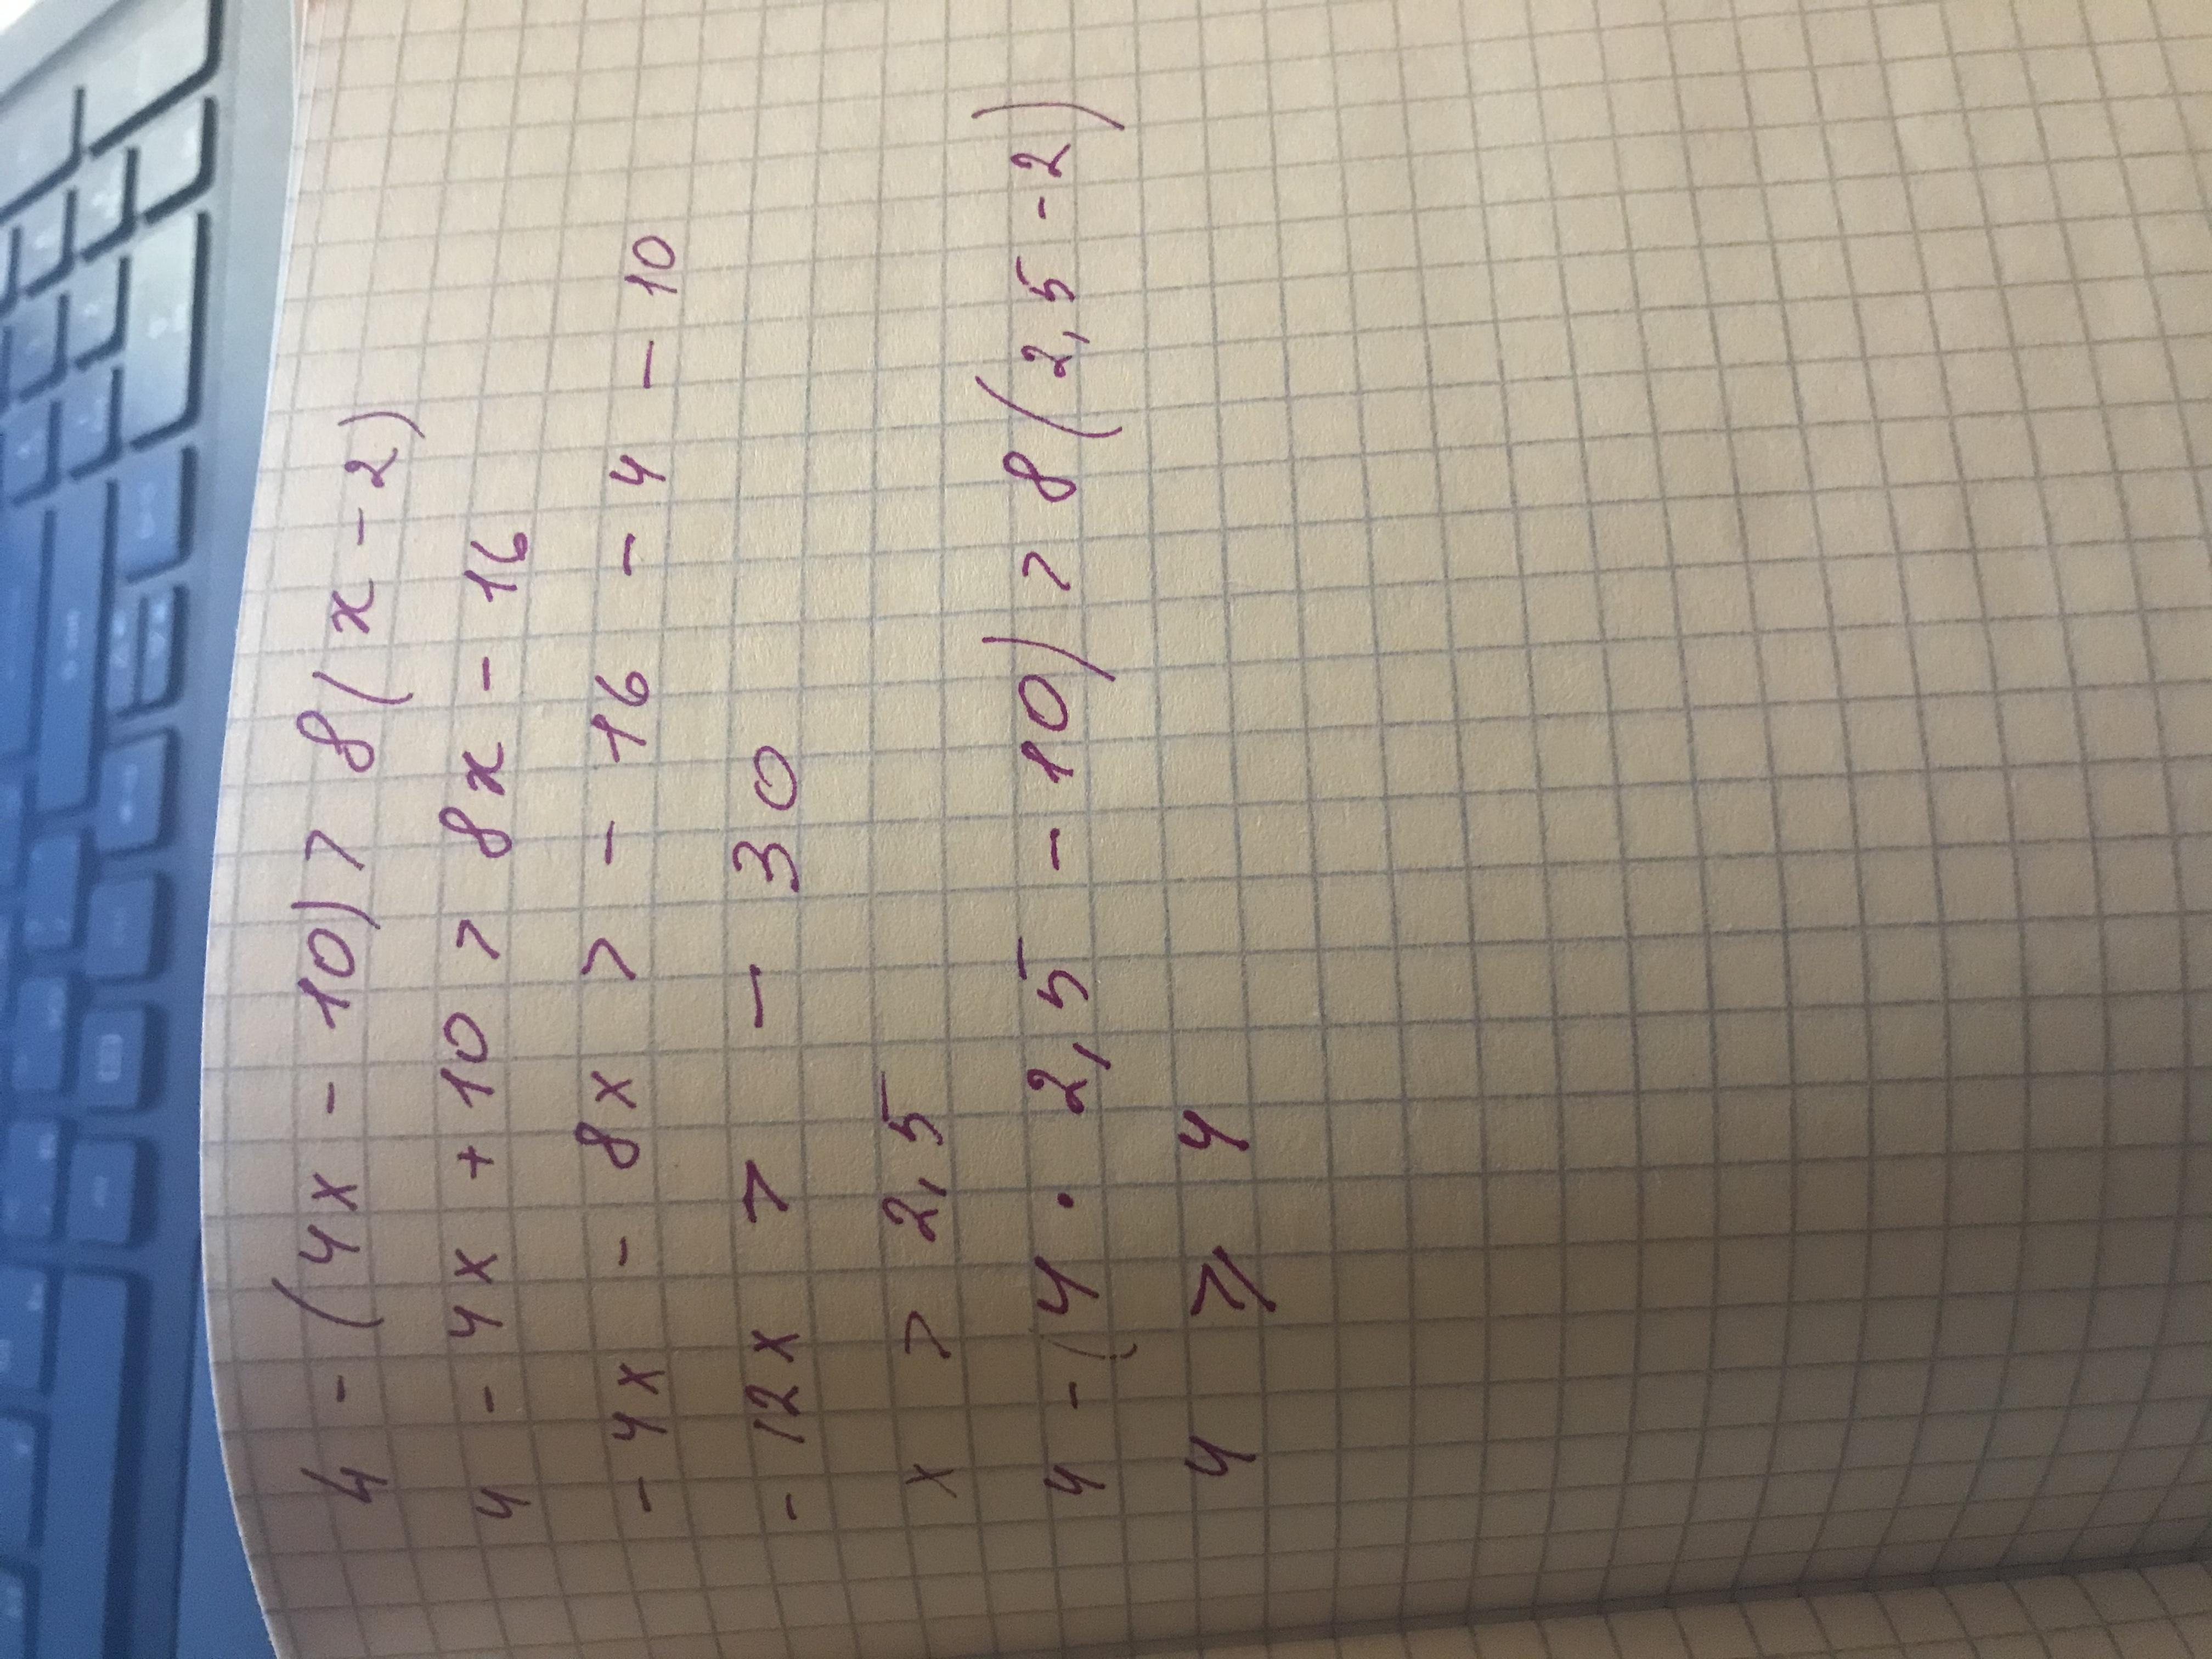 4 - (4x - 10) > 8(x - 2)
4 - 4x + 10 > 8x - 16
- 4x - 8x > - 16 - 4 - 10
- 12x > - 30
x > 2,5
4 - (4 · 2,5 - 10) > 8(2,5 - 2)
4 ⩾ 4